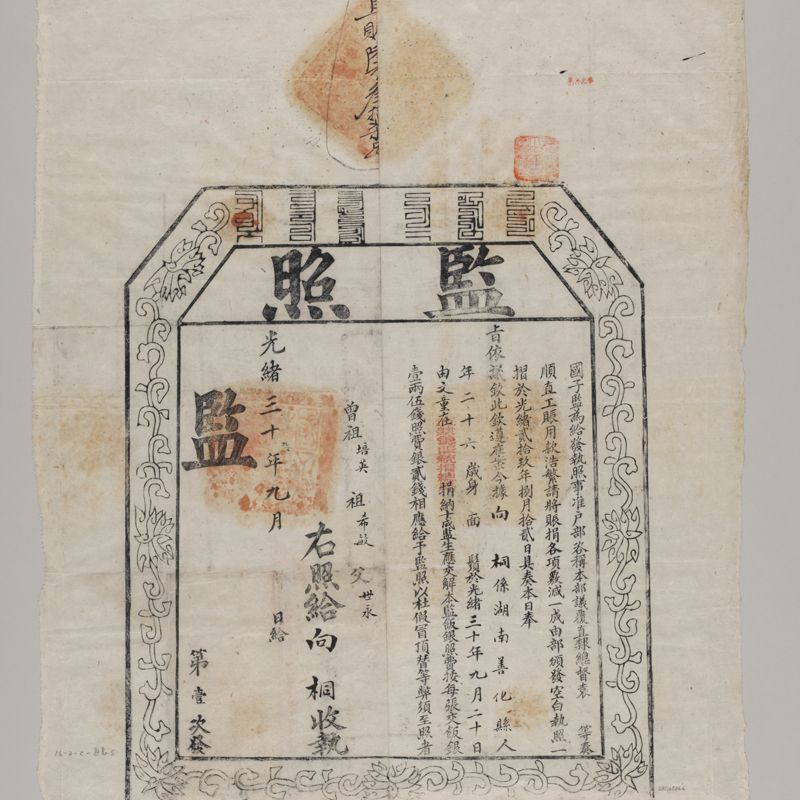 監照
國子監為給發執照事准户部咨稱本部議覆直隸總督袁 等奏
順直工賑用款浩繁請將賑捐各項覈減一成由部頒發空白執照一
摺於光緒貳拾玖年捌月拾貳日具奏本日奉
旨依議欽此欽遵應案今據向 桐係湖南善化縣人
年二十六歲身 面 鬚於光緒三十年九月二十日
由文童在 捐納十成監生應交解本監飯銀照費按每張交飯銀
壹兩伍錢照費銀貳錢相應給予監照以杜假冒頂替等弊須至照者
曾祖培英 祖希敏 父世永
右照給向 桐收執
光緒三十年九月 日給
監
第壹次發